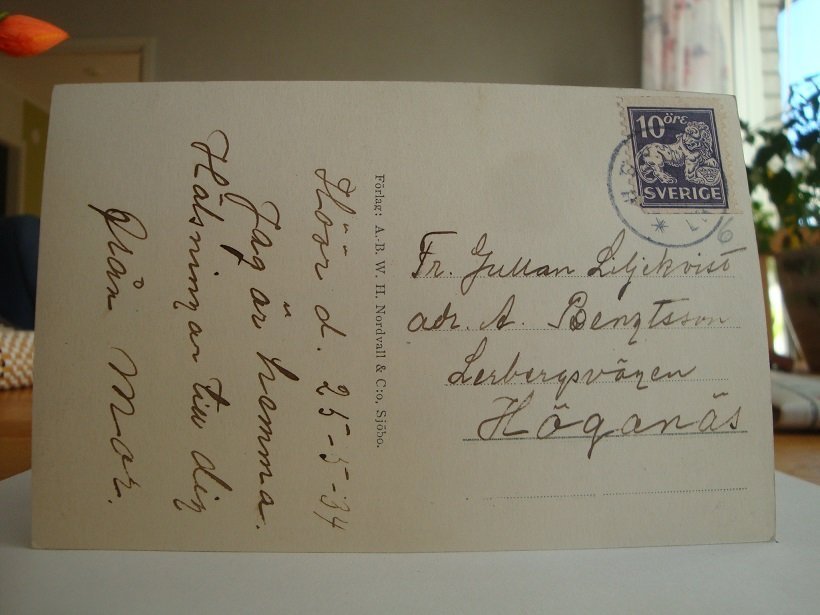 Höör d. 25-5-34
Jag är hemma.
Hälsningar till dig
från Mor.
Förlag: A.-B. W. H. Nordvall & C:o, Sjöbo.
10 öre
SVERIGE
Fr. Gullan Liljekvist
adr. A. Bengtsson
Lerbergsvägen
Höganäs